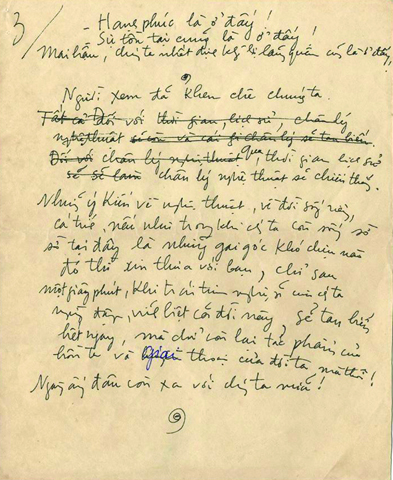 3/
- Hạnh phúc là ở đấy!
Sự tồn tại cũng là ở đấy!
Mai hậu, chúng ta nhất định không bị lãng quên cũng là ở đấy!
Người xem đã khen chê chúng ta.
Tất cả đối với thời gian, lịch sử, chân lý
nghệ thuật sẽ còn và cái gì chân lý sẽ tan biến.
Đối với chân lý nghệ thuật qua, thời gian lịch sử
sẽ sẽ làm chân lý nghệ thuật sẽ chiến thắng.
Những ý kiến về nghệ thuật, về đời sống này,
cá thể, nếu như trong khi chúng ta còn sống sờ
sờ tại đây là những gai góc khó chịu nào
đó thì xin thưa với bạn, chỉ sau
một giây phút, khi trái tim nghệ sĩ của chúng ta
ngừng đập, vĩnh biệt cõi đời này, sẽ tan biến
hết ngay, mà chỉ còn lại tác phẩm của
hồn ta và giai thoại của đời ta mà thôi!
Ngày ấy đâu còn xa với chúng ta nữa!